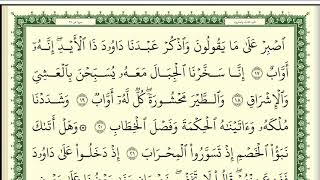 ٱصۡبِرۡ عَلَىٰ مَا يَقُولُونَ وَٱذۡكُرۡ عَبۡدَنَا دَاوُۥدَ ذَا ٱلۡأَيۡدِۖ إِنَّهُۥٓ
أَوَّابٌ ١٧ إِنَّا سَخَّرۡنَا ٱلۡجِبَالَ مَعَهُۥ يُسَبِّحۡنَ بِٱلۡعَشِيِّ
وَٱلۡإِشۡرَاقِ ١٨ وَٱلطَّيۡرَ مَحۡشُورَةٗۖ كُلّٞ لَّهُۥٓ أَوَّابٞ ١٩ وَشَدَدۡنَا
مُلۡكَهُۥ وَءَاتَيۡنَٰهُ ٱلۡحِكۡمَةَ وَفَصۡلَ ٱلۡخِطَابِ ٢٠ ۞ وَهَلۡ أَتَىٰكَ
نَبَؤُاْ ٱلۡخَصۡمِ إِذۡ تَسَوَّرُواْ ٱلۡمِحۡرَابَ ٢١ إِذۡ دَخَلُواْ عَلَىٰ دَاوُۥدَ